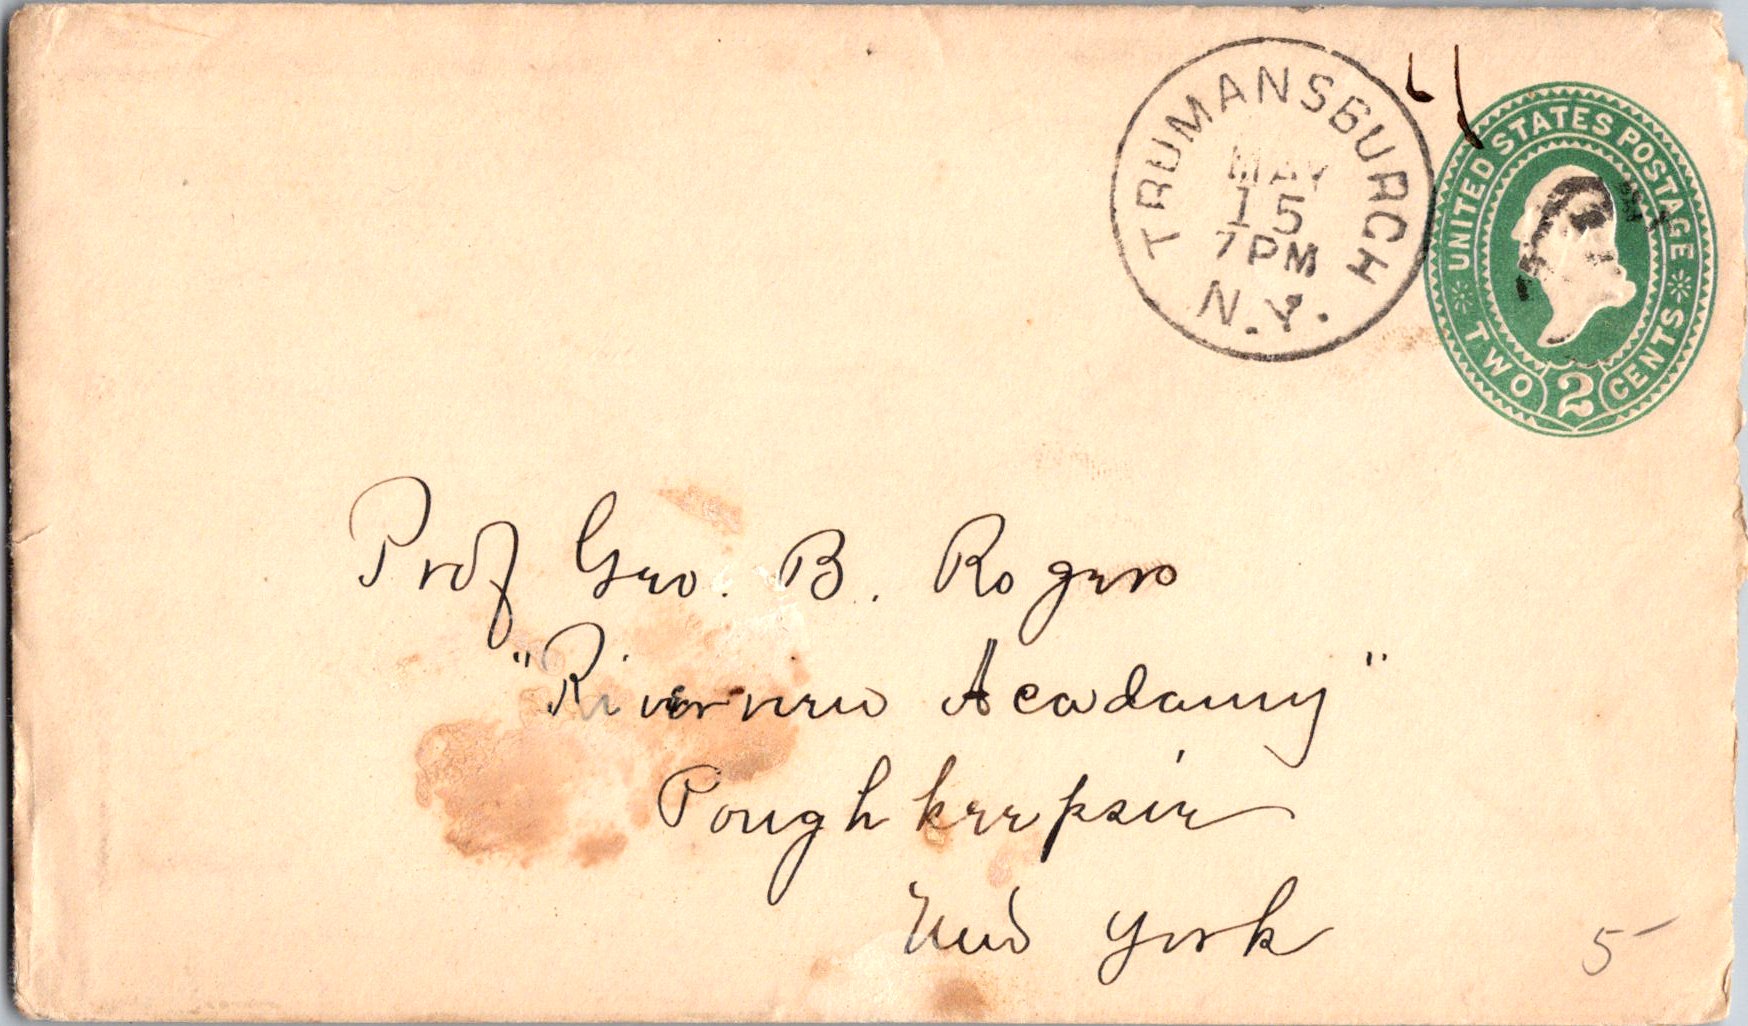 TRUMANSBURGH
MAY
15
7PM
N.Y.
UNITED STATES POSTAGE
TWO 2 CENTS
Prof Geo. B. Rogers
"Riverview Academy"
Poughkeepsie
New York
5